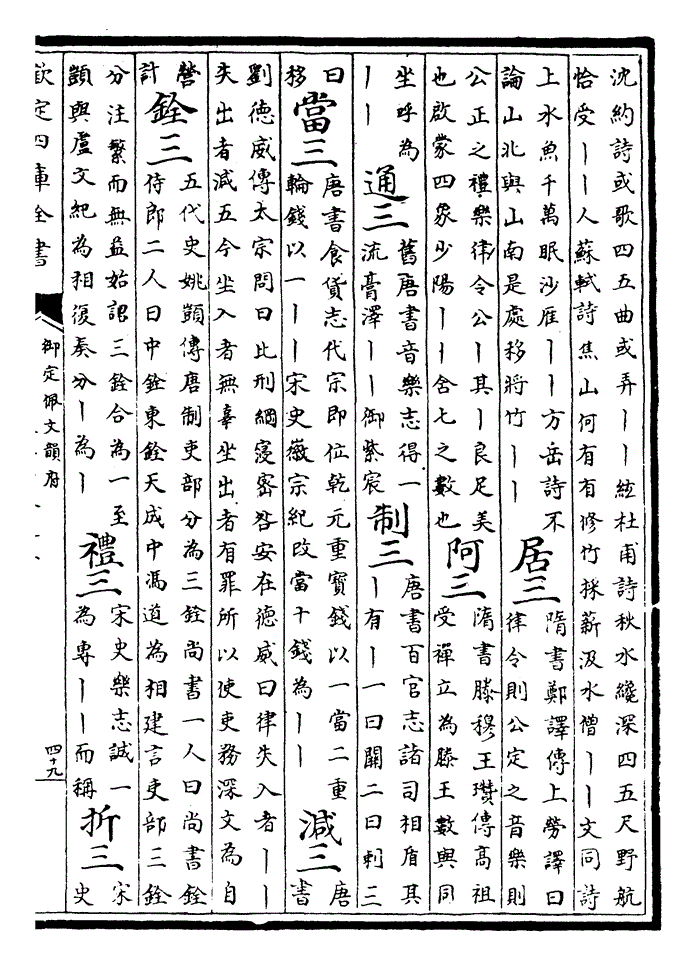 沈約詩或歌四五曲或弄丨丨絃杜甫詩秋水纔深四五尺野航
恰受丨丨人蘇軾詩焦山何有有修竹採薪汲水僧丨丨文同詩
上水魚千萬眠沙厓丨丨方岳詩不
論山北與山南是處移將竹丨丨
居三
隋書鄭譯傳上勞譯曰
律令則公定之音樂則
公正之禮樂律令公丨其丨良足美
也啟蒙四象少陽丨丨舍七之數也
阿三
隋書滕穆王瓚傳高祖
受禪立為滕王數與同
坐呼為
丨丨
通三
舊唐書音樂志得一
流膏澤丨丨御紫宸
制三
唐書百官志諸司相盾其
丨有丨一曰關二曰刺三
曰
移
當三
唐書食貨志代宗即位乾元重寶錢以一當二重
輪錢以一丨丨宋史徽宗紀改當十錢為丨丨
減三
唐
書
劉德威傳太宗問曰比刑網寖密咎安在德威曰律失入者丨丨
失出者減五今坐入者無辜坐出者有罪所以使吏務深文為自
營
計
銓三
五代史姚顗傳唐制吏部分為三銓尚書一人曰尚書銓
侍郎二人曰中銓東銓天成中馮道為相建言吏部三銓
分注繁而無益始詔三銓合為一至
顗與盧文紀為相復奏分丨為丨
禮三
宋史樂志誠一
為專丨丨而稱
折三
宋
史
欽定四庫全書
御定佩文韻府
四十九